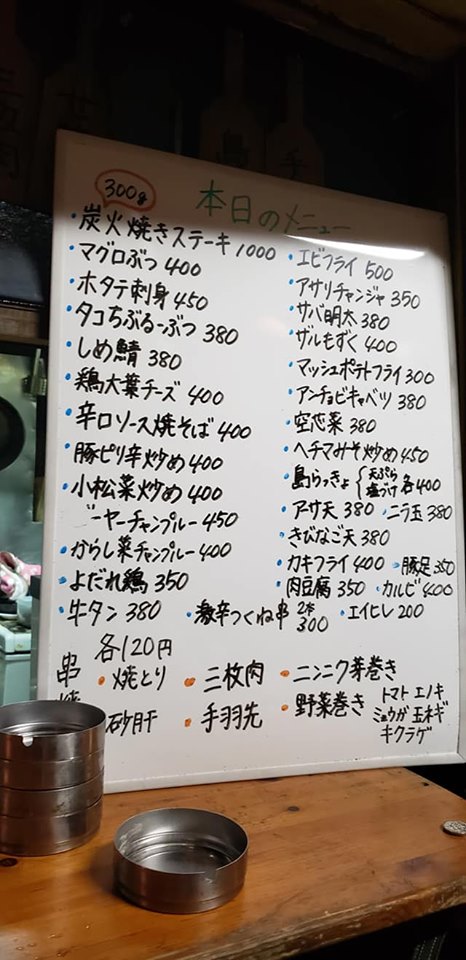 300g
本日のメニュー
炭火焼きステーキ 1000
マグロぶつ 400
ホタテ刺身 450
タコちぶるーぶつ 380
しめ鯖 380
鶏大葉チーズ 400
辛口ソース焼そば 400
豚ピリ辛炒め 400
小松菜炒め 400
ーヤーチャンプルー 450
からし菜チャンプルー 400
よだれ鶏 350
牛タン 380
激辛つくね串 2本 300
エイヒレ 200
エビフライ 500
アサリチャンジャ 350
サバ明太 380
ザルもずく 400
マッシュポテトフライ 300
アンチョビキャベツ 380
空芯菜 380
ヘチマみそ炒め 450
島らっきょ { 天ぷら 塩づけ 各400
アーサ天 380 ニラ玉 380
きびなご天 380
カキフライ 400 豚足 350
肉豆腐 350 カルビ 400
串焼 各120円
焼とり 三枚肉 ニンニク芽巻き
砂肝 手羽先 野菜巻き
トマト エノキ
ミョウガ 玉ネギ
キクラゲ